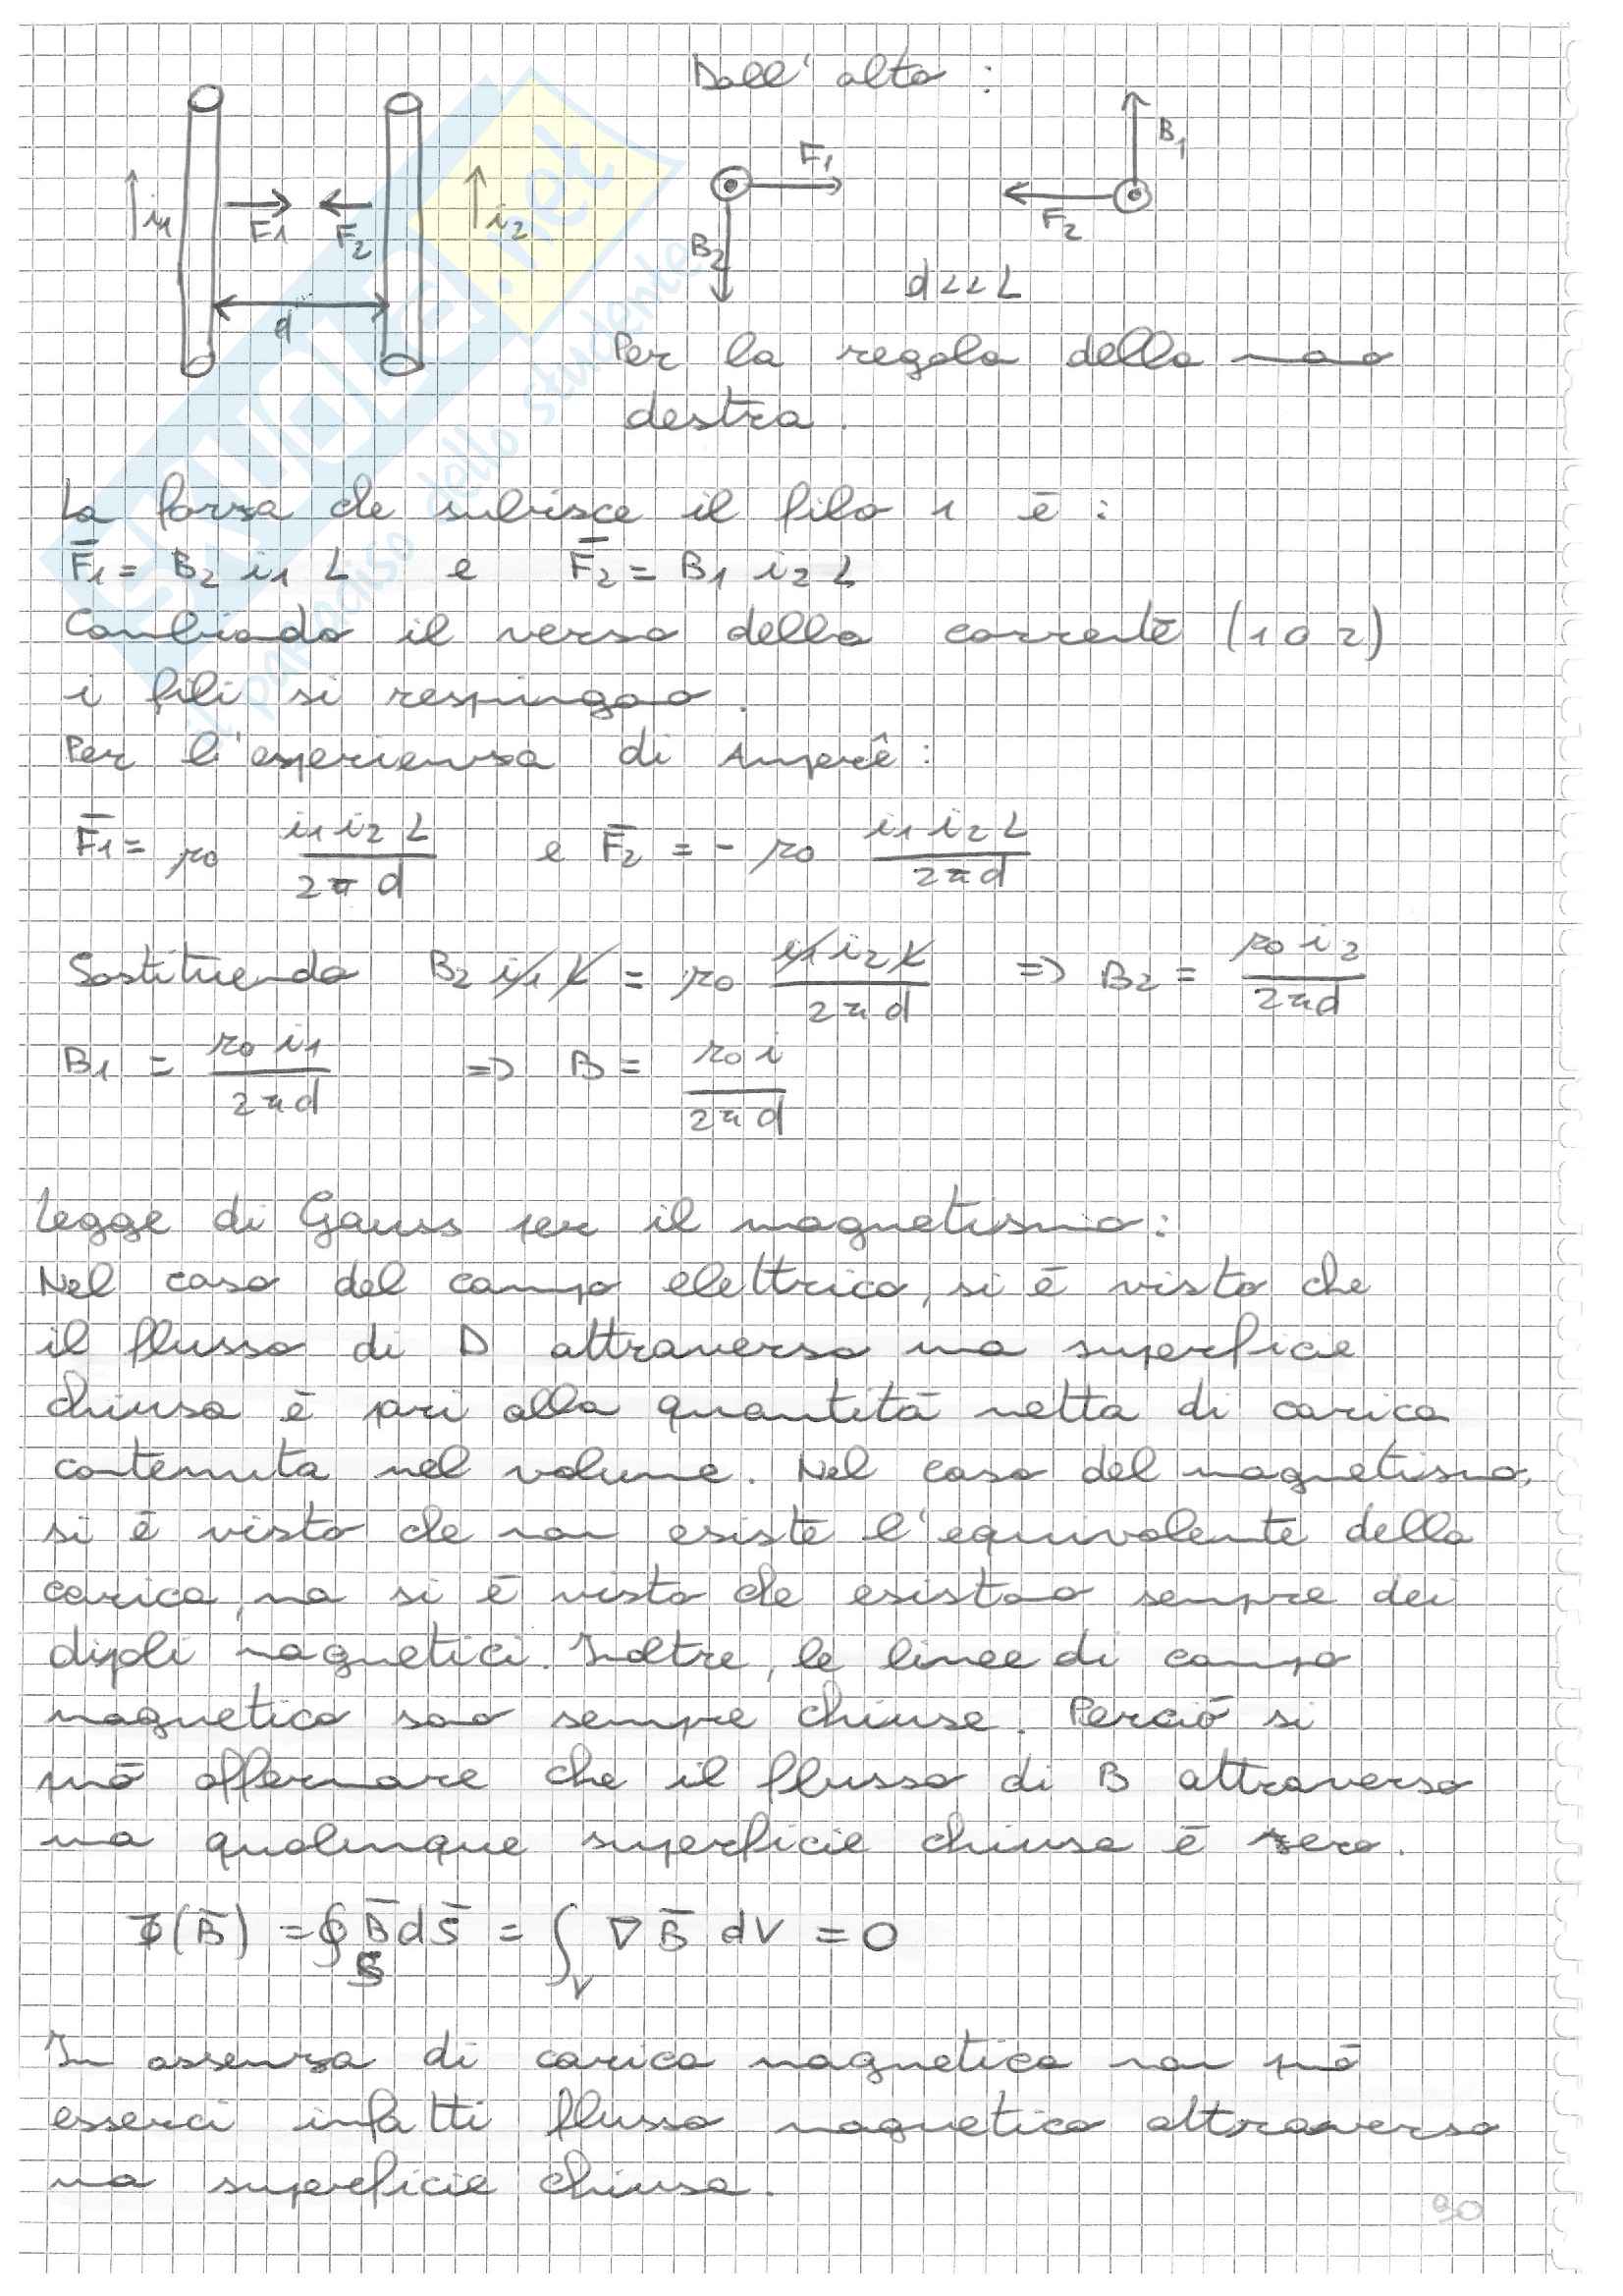 Dall'alto :
i1 F1 F2 i2 d
F1 B2 F2 B1
d<<L
Per la regola della mano
destra.
La forza che subisce il filo 1 è :
F̄1 = B2 i1 L e F̄2 = B1 i2 L
Cambiando il verso della corrente (1 o 2)
i fili si respingono.
Per l'esperienza di Amperê :
F̄1 = μ0 i1 i2 L / 2π d e F̄2 = - μ0 i1 i2 L / 2π d
Sostituendo B2 i1 L = μ0 i1 i2 L / 2π d => B2 = μ0 i2 / 2πd
B1 = μ0 i1 / 2πd => B = μ0 i / 2πd
Legge di Gauss per il magnetismo:
Nel caso del campo elettrico, si è visto che
il flusso di D attraverso una superficie
chiusa è pari alla quantità netta di carica
contenuta nel volume. Nel caso del magnetismo,
si è visto che non esiste l'equivalente della
carica, ma si è visto che esistono sempre dei
dipoli magnetici. Inoltre, le linee di campo
magnetico sono sempre chiuse. Perciò si
può affermare che il flusso di B attraverso
una qualunque superficie chiusa è zero.
Φ(B̄) = ∮S B̄ dS̄ = ∫V ∇ B̄ dV = 0
In assenza di carica magnetica non può
esserci infatti flusso magnetico attraverso
una superficie chiusa.
90